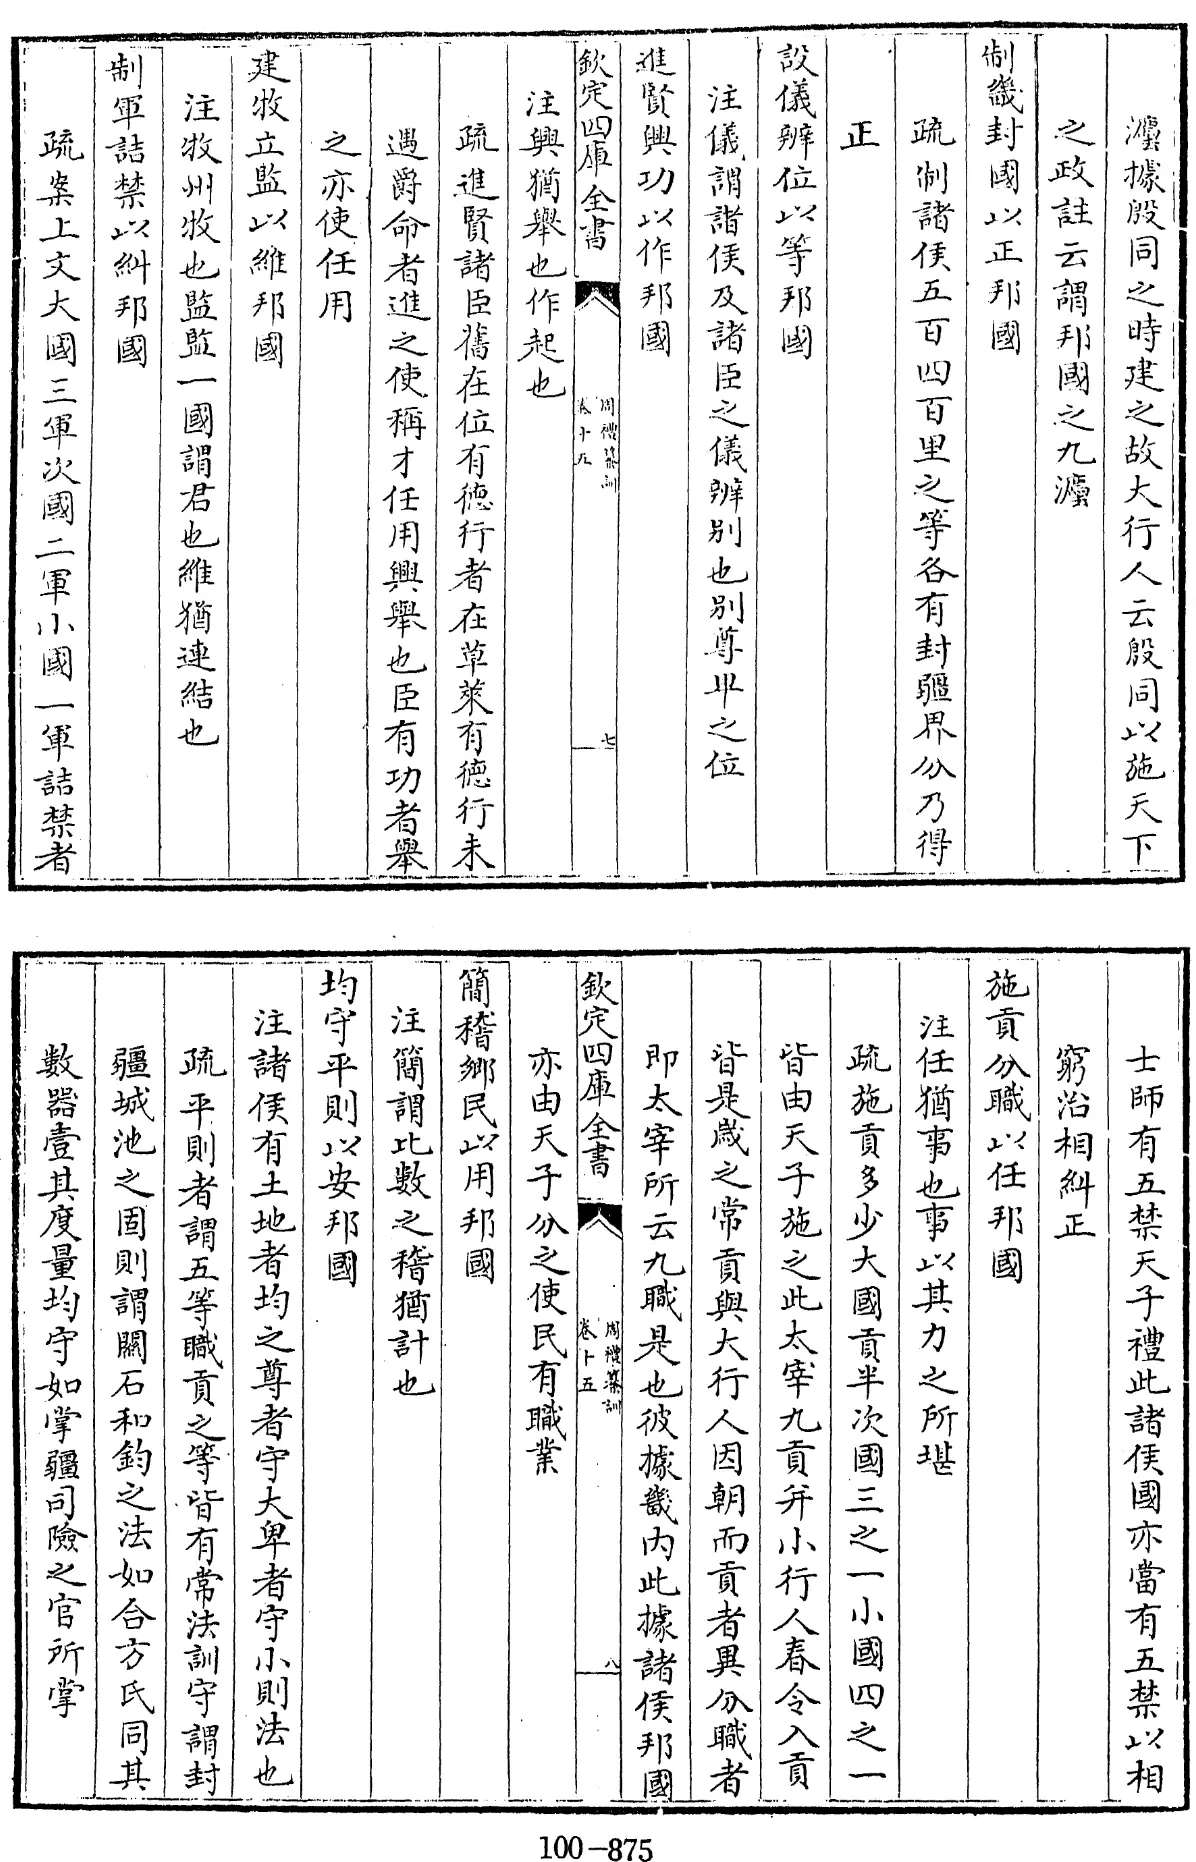 灋據殷同之時建之故大行人云殷同以施天下
之政註云謂邦國之九灋
制畿封國以正邦國
疏制諸侯五百四百里之等各有封疆界分乃得
正
設儀辨位以等邦國
注儀謂諸侯及諸臣之儀辨別也別尊卑之位
進賢興功以作邦國
欽定四庫全書
周禮纂訓
卷十五
七
注興猶舉也作起也
疏進賢諸臣舊在位有德行者在草萊有德行未
遇爵命者進之使稱才任用興舉也臣有功者舉
之亦使任用
建牧立監以維邦國
注牧州牧也監監一國謂君也維猶連結也
制軍詰禁以糾邦國
疏案上文大國三軍次國二軍小國一軍詰禁者
士師有五禁天子禮此諸侯國亦當有五禁以相
窮治相糾正
施貢分職以任邦國
注任猶事也事以其力之所堪
疏施貢多少大國貢半次國三之一小國四之一
皆由天子施之此太宰九貢并小行人春令入貢
皆是歲之常貢與大行人因朝而貢者異分職者
即太宰所云九職是也彼據畿内此據諸侯邦國
欽定四庫全書
周禮纂訓
卷十五
八
亦由天子分之使民有職業
簡稽鄉民以用邦國
注簡謂比數之稽猶計也
均守平則以安邦國
注諸侯有土地者均之尊者守大卑者守小則法也
疏平則者謂五等職貢之等皆有常法訓守謂封
疆城池之固則謂關石和鈞之法如合方氏同其
數器壹其度量均守如掌疆司險之官所掌
100-875